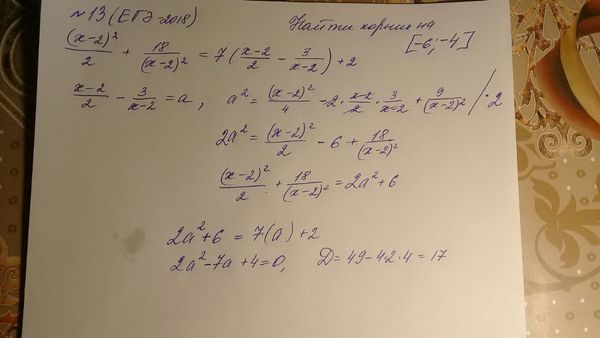 №13 (ЕГЭ-2018) Найти корни на
(x-2)²/2 + 18/(x-2)² = 7((x-2)/2 - 3/(x-2)) + 2 [-6; -4]
(x-2)/2 - 3/(x-2) = a, a² = (x-2)²/4 - 2·(x-2)/2·3/(x-2) + 9/(x-2)² / ·2
2a² = (x-2)²/2 - 6 + 18/(x-2)²
(x-2)²/2 + 18/(x-2)² = 2a² + 6
2a² + 6 = 7(a) + 2
2a² - 7a + 4 = 0, D = 49 - 4·2·4 = 17